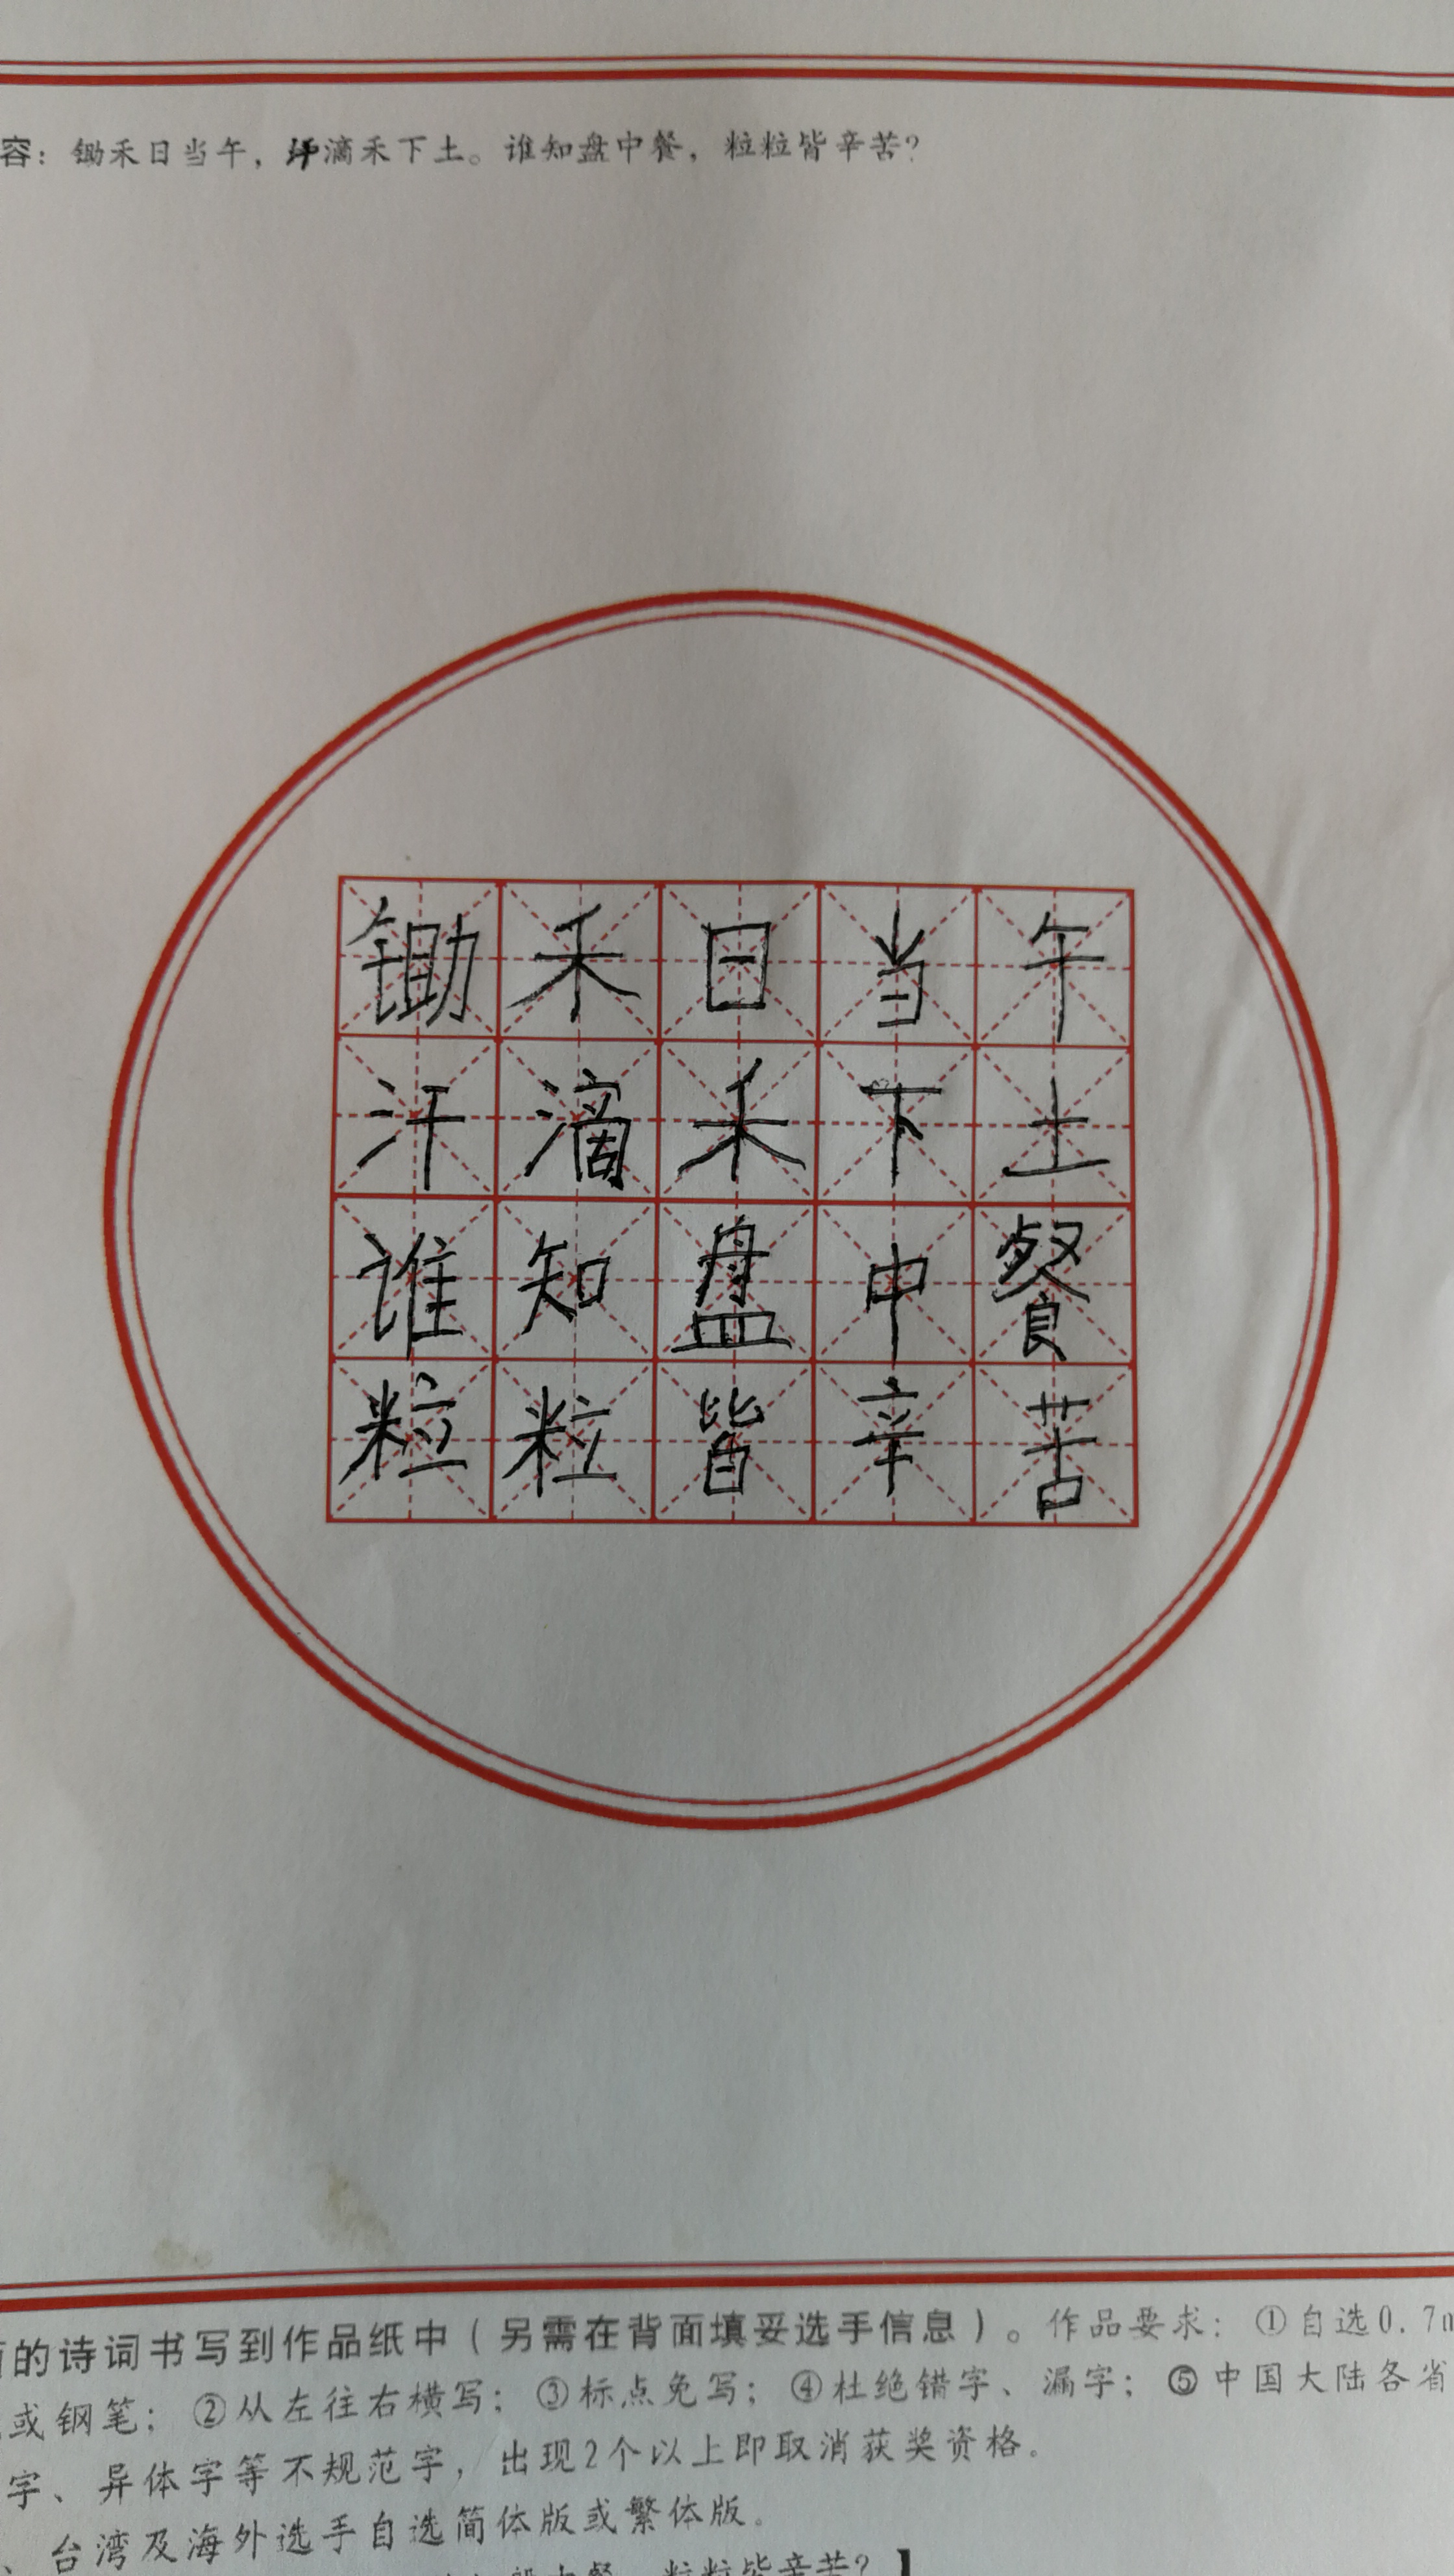 容：锄禾日当午，汗滴禾下土。谁知盘中餐，粒粒皆辛苦？
锄禾日当午
汗滴禾下土
谁知盘中餐
粒粒皆辛苦
的诗词书写到作品纸中（另需在背面填妥选手信息）。作品要求：①自选0.7
或钢笔；②从左往右横写；③标点免写；④杜绝错字、漏字；⑤中国大陆各省
字、异体字等不规范字，出现2个以上即取消获奖资格。
、台湾及海外选手自选简体版或繁体版。
中餐，粒粒皆辛苦？】